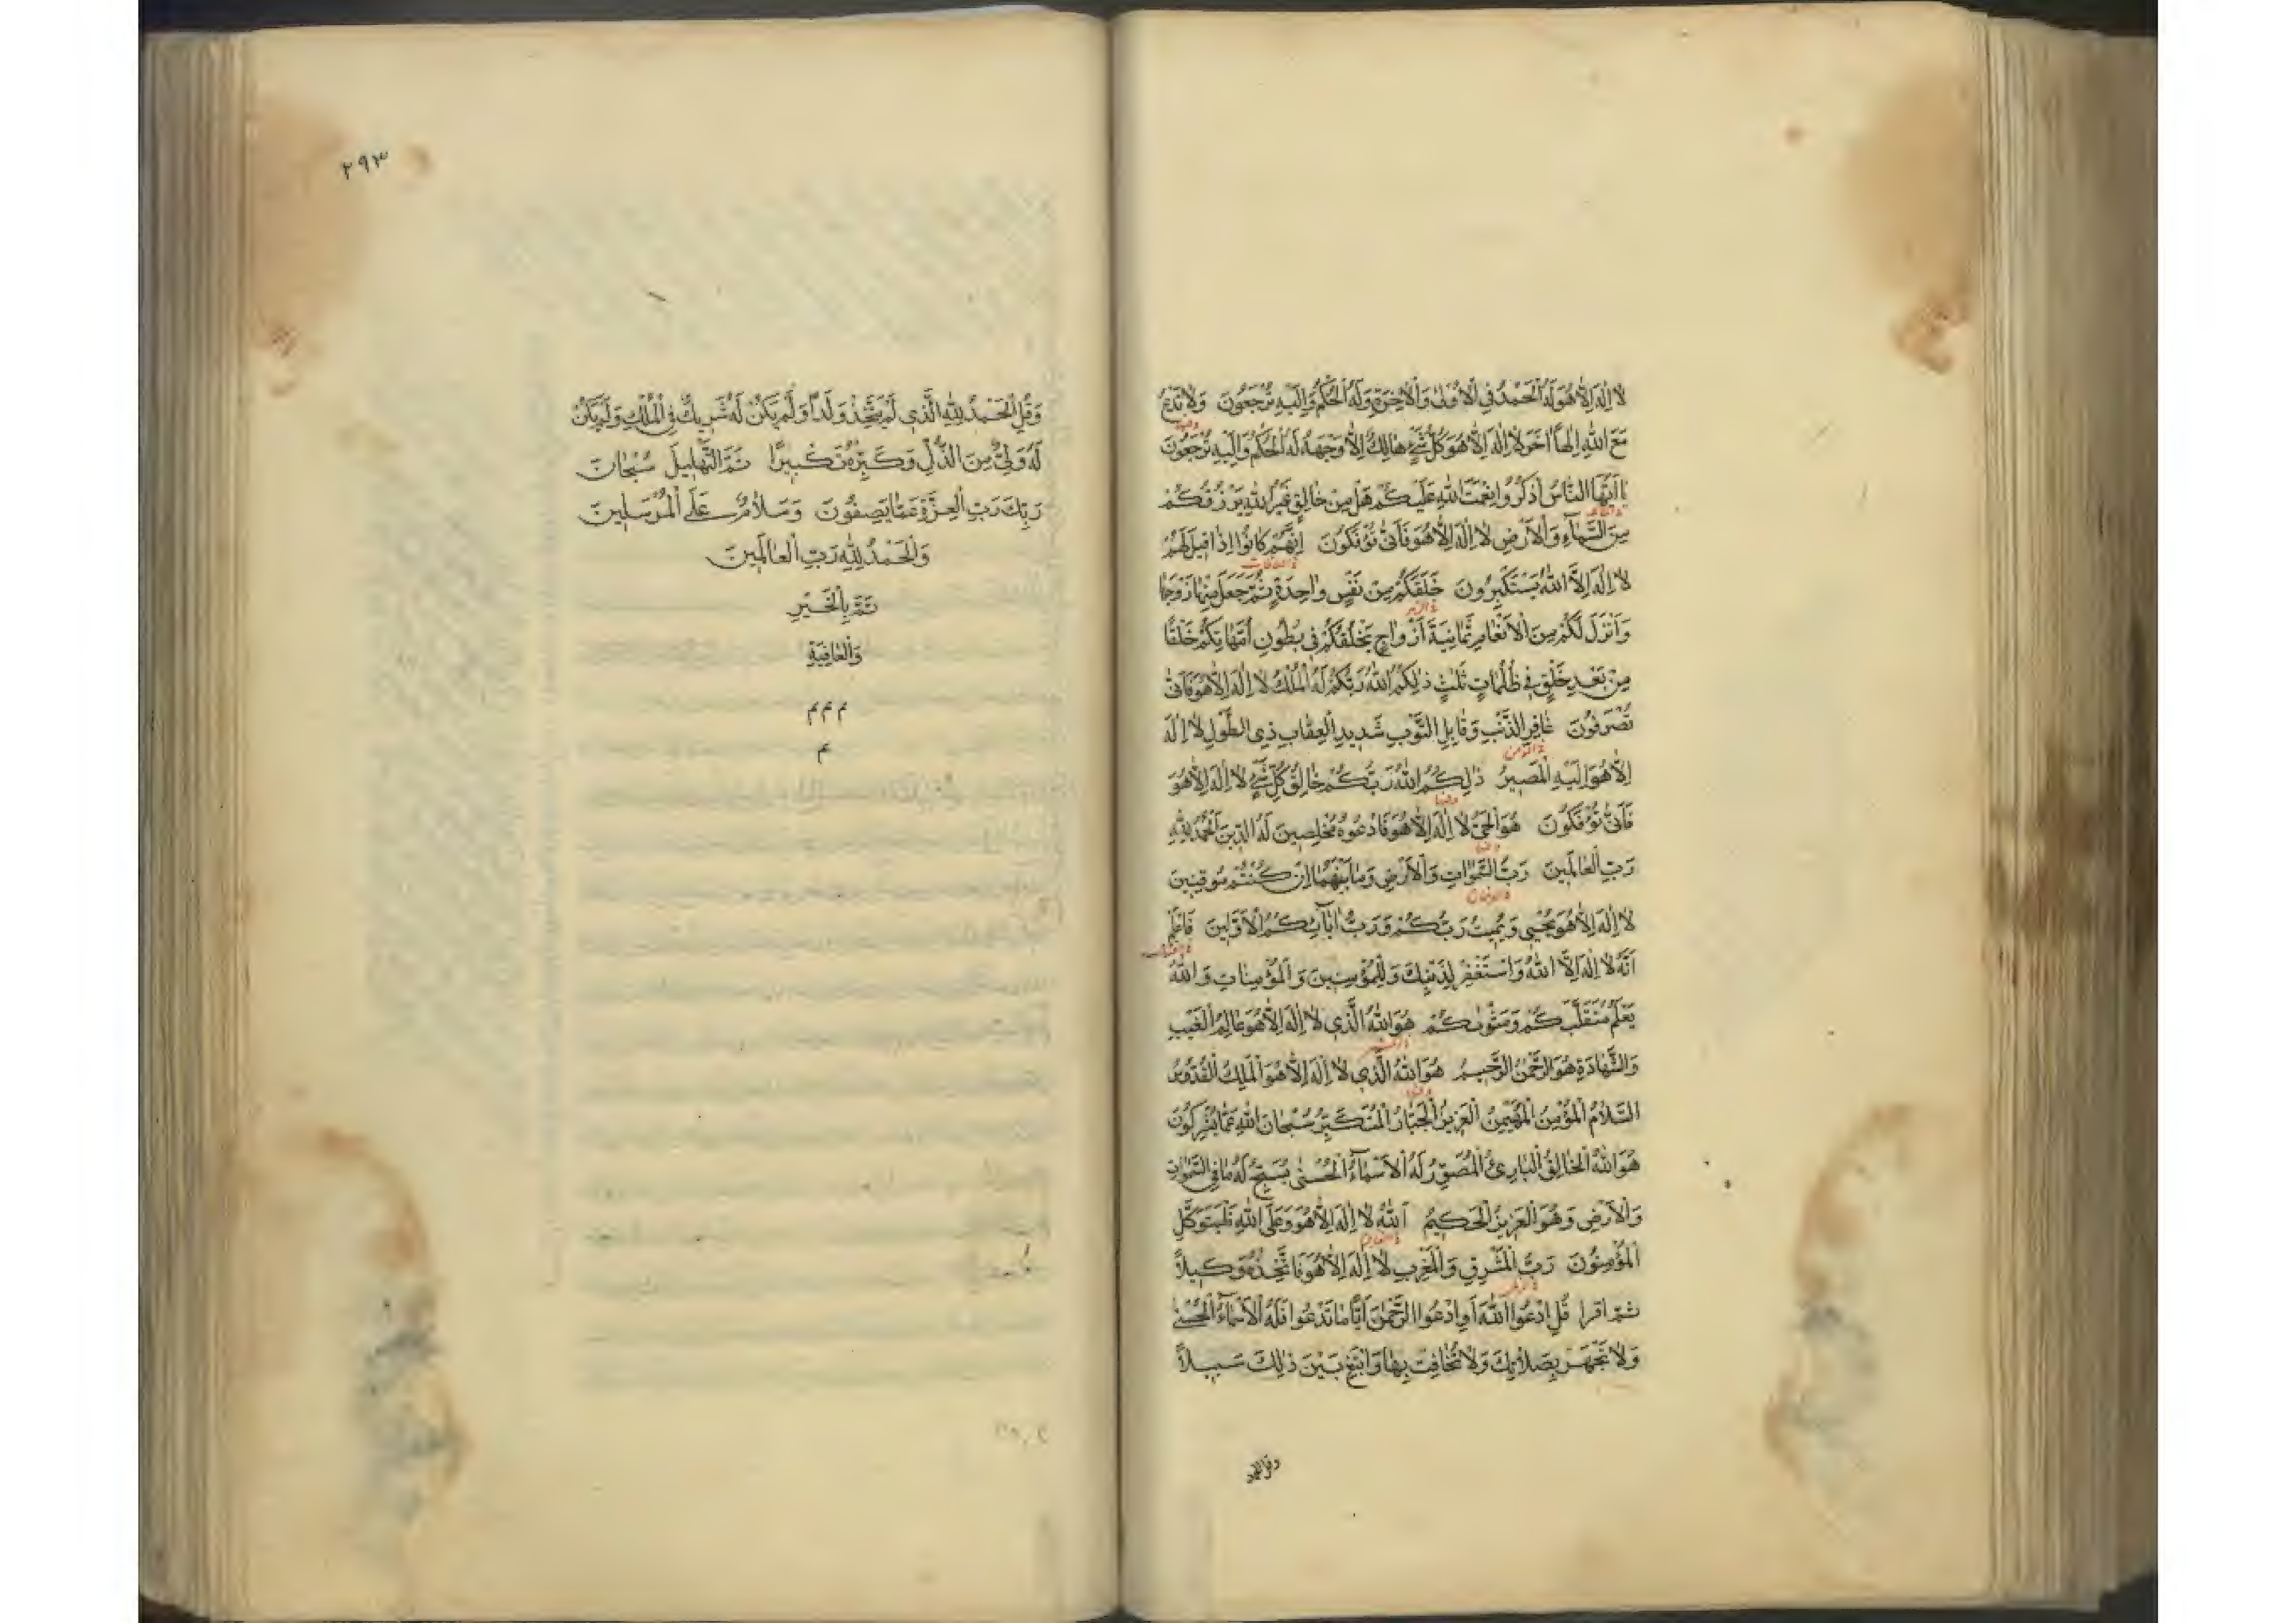 لا اِلهَ اِلاّ هُوَ لَهُ الْحَمْدُ فِي الْاُولىٰ وَالْاٰخِرَةِ وَلَهُ الْحُكْمُ وَاِلَيْهِ تُرْجَعُونَ وَلا تَدْعُ
وفيها
مَعَ اللهِ اِلهًا اٰخَرَ لا اِلهَ اِلاّ هُوَ كُلُّ شَيْءٍ هالِكٌ اِلاّ وَجْهَهُ لَهُ الْحُكْمُ وَاِلَيْهِ تُرْجَعُونَ
يا اَيُّهَا النّاسُ اذْكُرُوا نِعْمَتَ اللهِ عَلَيْكُمْ هَلْ مِنْ خالِقٍ غَيْرُ اللهِ يَرْزُقُكُمْ
مِنَ السَّمآءِ وَالْاَرْضِ لا اِلهَ اِلاّ هُوَ فَاَنّىٰ تُؤْفَكُونَ اِنَّهُمْ كانُوا اِذا قيلَ لَهُمْ
في الصافات
لا اِلهَ اِلاَّ اللهُ يَسْتَكْبِرُونَ خَلَقَكُمْ مِنْ نَفْسٍ واحِدَةٍ ثُمَّ جَعَلَ مِنْها زَوْجَها
في الزمر
وَاَنْزَلَ لَكُمْ مِنَ الْاَنْعامِ ثَمانِيَةَ اَزْواجٍ يَخْلُقُكُمْ في بُطُونِ اُمَّهاتِكُمْ خَلْقًا
مِنْ بَعْدِ خَلْقٍ في ظُلُماتٍ ثَلثٍ ذٰلِكُمُ اللهُ رَبُّكُمْ لَهُ الْمُلْكُ لا اِلهَ اِلاّ هُوَ فَاَنّىٰ
تُصْرَفُونَ غافِرِ الذَّنْبِ وَقابِلِ التَّوْبِ شَديدِ الْعِقابِ ذِي الطَّوْلِ لا اِلهَ
في المؤمن
اِلاّ هُوَ اِلَيْهِ الْمَصيرُ ذٰلِكُمُ اللهُ رَبُّكُمْ خالِقُ كُلِّ شَيْءٍ لا اِلهَ اِلاّ هُوَ
وفيها
فَاَنّىٰ تُؤْفَكُونَ هُوَ الْحَيُّ لا اِلهَ اِلاّ هُوَ فَادْعُوهُ مُخْلِصينَ لَهُ الدّينَ اَلْحَمْدُ لِلّهِ
وفيها
رَبِّ الْعالَمينَ رَبُّ السَّمٰوٰاتِ وَالْاَرْضِ وَما بَيْنَهُما اِنْ كُنْتُمْ مُوقِنينَ
في الدخان
لا اِلهَ اِلاّ هُوَ يُحْيي وَيُميتُ رَبُّكُمْ وَرَبُّ اٰبآئِكُمُ الْاَوَّلينَ فَاعْلَمْ
اَنَّهُ لا اِلهَ اِلاَّ اللهُ وَاسْتَغْفِرْ لِذَنْبِكَ وَلِلْمُؤْمِنينَ وَالْمُؤْمِناتِ وَاللهُ
يَعْلَمُ مُتَقَلَّبَكُمْ وَمَثْوٰيكُمْ هُوَ اللهُ الَّذي لا اِلهَ اِلاّ هُوَ عالِمُ الْغَيْبِ
وَالشَّهادَةِ هُوَ الرَّحْمٰنُ الرَّحيمُ هُوَ اللهُ الَّذي لا اِلهَ اِلاّ هُوَ الْمَلِكُ الْقُدُّوسُ
وفيها
السَّلامُ الْمُؤْمِنُ الْمُهَيْمِنُ الْعَزيزُ الْجَبّارُ الْمُتَكَبِّرُ سُبْحانَ اللهِ عَمّا يُشْرِكُونَ
هُوَ اللهُ الْخالِقُ الْبارِئُ الْمُصَوِّرُ لَهُ الْاَسْمآءُ الْحُسْنىٰ يُسَبِّحُ لَهُ ما فِي السَّمٰوٰاتِ
وَالْاَرْضِ وَهُوَ الْعَزيزُ الْحَكيمُ اَللهُ لا اِلهَ اِلاّ هُوَ وَعَلَى اللهِ فَلْيَتَوَكَّلِ
في التغابن
الْمُؤْمِنُونَ رَبُّ الْمَشْرِقِ وَالْمَغْرِبِ لا اِلهَ اِلاّ هُوَ فَاتَّخِذْهُ وَكيلاً
ثم اقرا قُلِ ادْعُوا اللهَ اَوِ ادْعُوا الرَّحْمٰنَ اَيًّا ما تَدْعُوا فَلَهُ الْاَسْمآءُ الْحُسْنىٰ
وَلا تَجْهَرْ بِصَلاتِكَ وَلا تُخافِتْ بِها وَابْتَغِ بَيْنَ ذٰلِكَ سَبيلاً
وقل الحمد
٢٩٣
وَقُلِ الْحَمْدُ لِلّهِ الَّذي لَمْ يَتَّخِذْ وَلَدًا وَلَمْ يَكُنْ لَهُ شَريكٌ فِي الْمُلْكِ وَلَمْ يَكُنْ
لَهُ وَلِيٌّ مِنَ الذُّلِّ وَكَبِّرْهُ تَكْبيرًا تَمَّ التَّهْليلُ سُبْحانَ
رَبِّكَ رَبِّ الْعِزَّةِ عَمّا يَصِفُونَ وَسَلامٌ عَلَى الْمُرْسَلينَ
وَالْحَمْدُ لِلّهِ رَبِّ الْعالَمينَ
تَمَّ بِالْخَيْرِ
وَالْعافِيَةِ
م م م
م